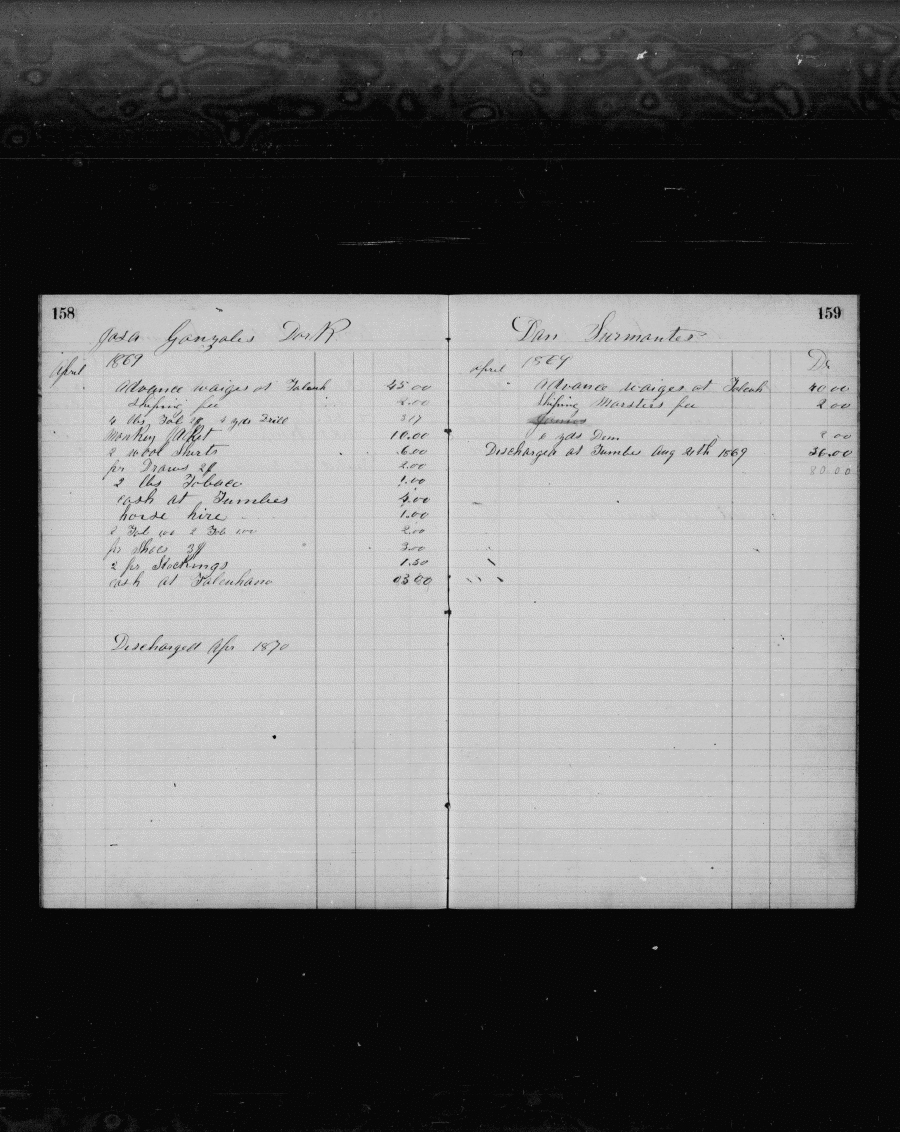 158
Josa Gonzales Dork
April 1869
Advance waiges at Talcuh 45.00
Shiping fee 2.00
4 lbs Tob 4 yds Drill 3 17
Monkey Jacket 10.00
2 wool Shirts 6.00
pr Draws 2$ 2.00
2 lbs Tobaco 1.00
cash at Tumbes 4.00
horse hire 1.00
2 Tob 2 Tob 2.00
pr Shoes 3$ 3.00
2 pr Stockings 1.50
cash at Talcuhano 03 00
Discharged Apr 1870
159
Dan Surmantes
April 1869 Dr
Advance waiges at Talcuh 40 00
Shiping Marsters fee 2 00
yds Dem 2 00
Discharged at Tumbes Aug 20th 1869 36.00
80.00